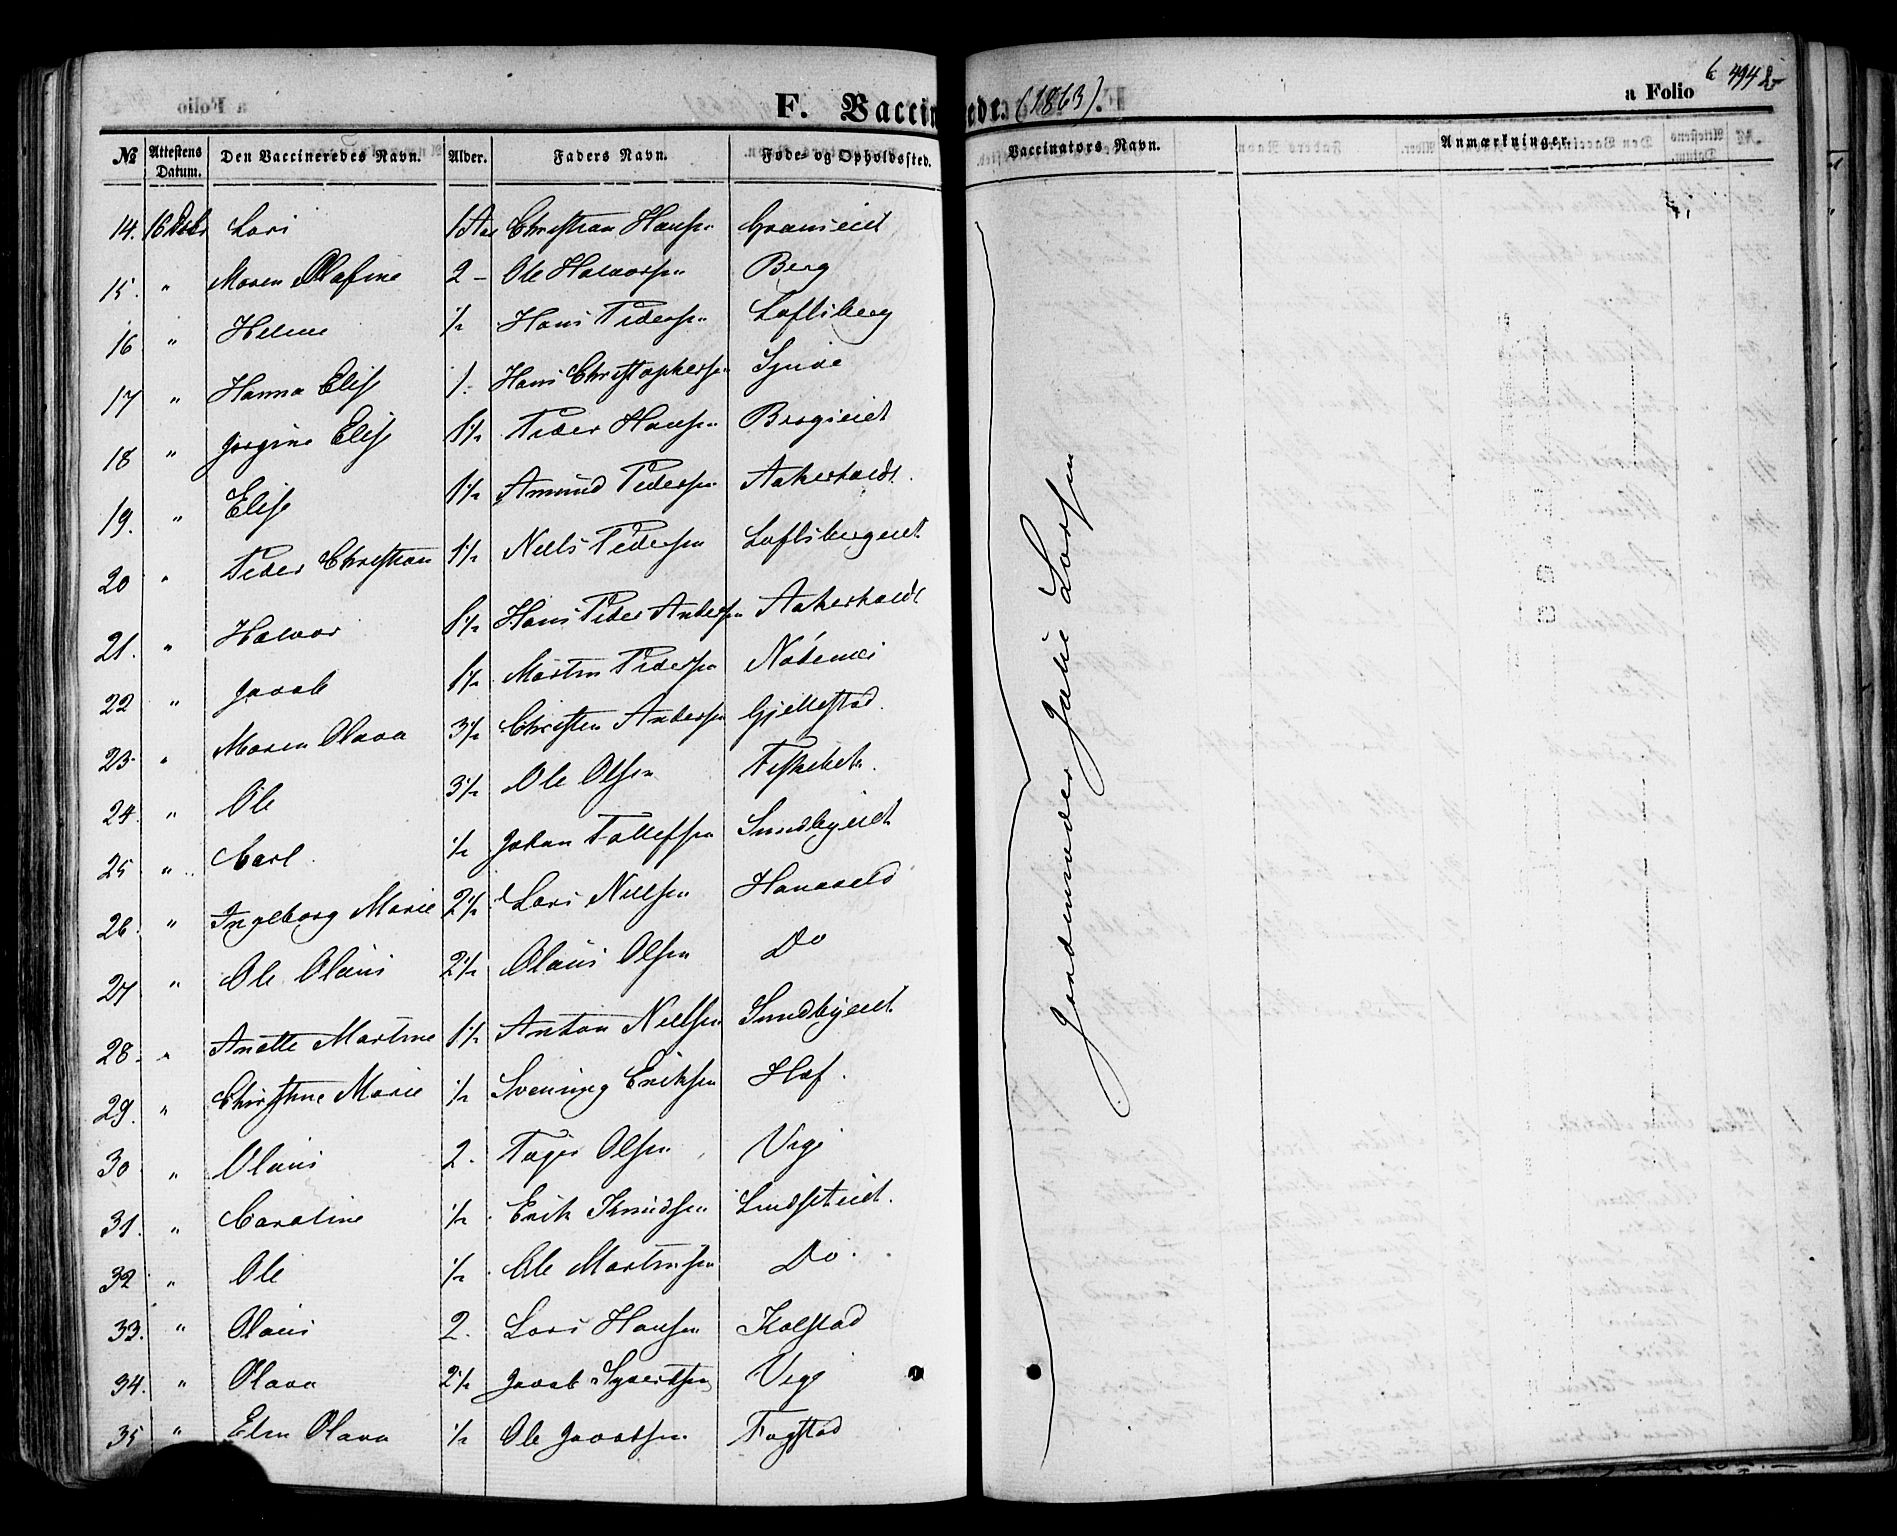 F. Vaccinerede. (1863).
a Folio 494
№ Attestens Datum. Den Vaccineredes Navn. Alder. Faders Navn. Føde- og Opholdssted. Vaccinators Navn. Anmærkninger.
14. 16 Lars Christian Hansen
15. " Maren Olafine 2 - Ole Halvorsen Berg
16 " Helene ½ Hans Pedersen Loftsberg
17 " Hanna Elise 1. Hans Christophersen
18 " Jorgine Elise 1½ Peder Hansen
19. " Elise 1½ Amund Pedersen Aakerholdt.
20 " Peder Christian 1½ Niels Pedersen Loftsbergeiet
21. " Halvor 1½ Hans Peder Andersen Aakerholdt
22 " Jacob 1½ Martin Pedersen
23. " Maren Olava 3½ Christen Andersen Gjellestad.
24. " Ole 3½ Ole Olsen Fiskebek.
25 " Carl. ½ Johan Tollefsen Sundbyeiet
26. " Ingeborg Marie 2½ Lars Nielsen Hanevold
27 " Ole Olaus 2½ Olaus Olsen Do
28. " Anette Martine 1½ Anton Nielsen Sundbyeiet.
29. " Christine Marie ½ Svening Eriksen Haf.
30 " Olaus 2. Olsen
31. " Caroline ½ Erik Knudsen
32 " Ole ½ Ole Martinsen Do.
33. " Olaus 2. Lars Hansen Kolstad
34. " Olava 2½ Jacob Syvertsen
35 " Elen Olava ½ Ole Jacobsen Fogstad
Jordemoder Larsen